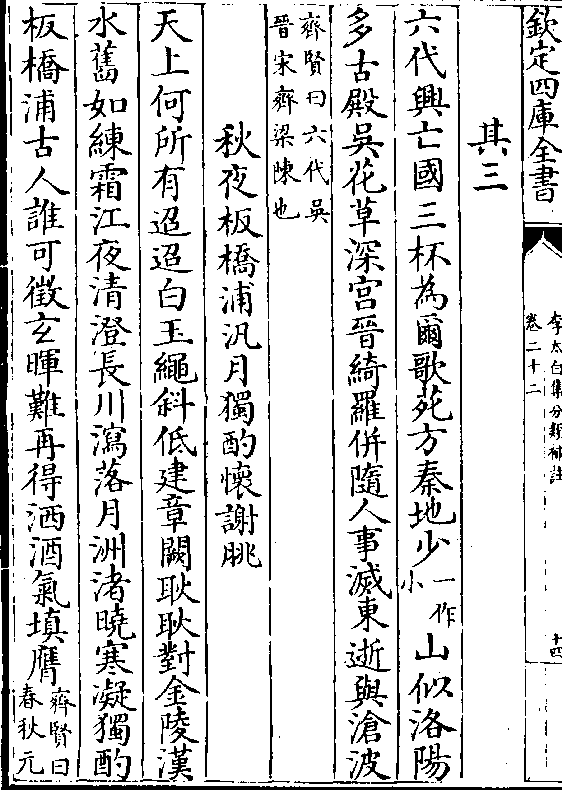 欽定四庫全書
李太白集分類補註
卷二十二
十四
其三
六代興亡國三杯為爾歌苑方秦地少一作小山似洛陽
多古殿吳花草深宮晉綺羅併隨人事滅東逝與滄波
齊賢曰六代吳
晉宋齊梁陳也
秋夜板橋浦汎月獨酌懷謝朓
天上何所有迢迢白玉繩斜低建章闕耿耿對金陵漢
水舊如練霜江夜清澄長川瀉落月洲渚曉寒凝獨酌
板橋浦古人誰可徵玄暉難再得洒酒氣填膺齊賢曰
春秋元